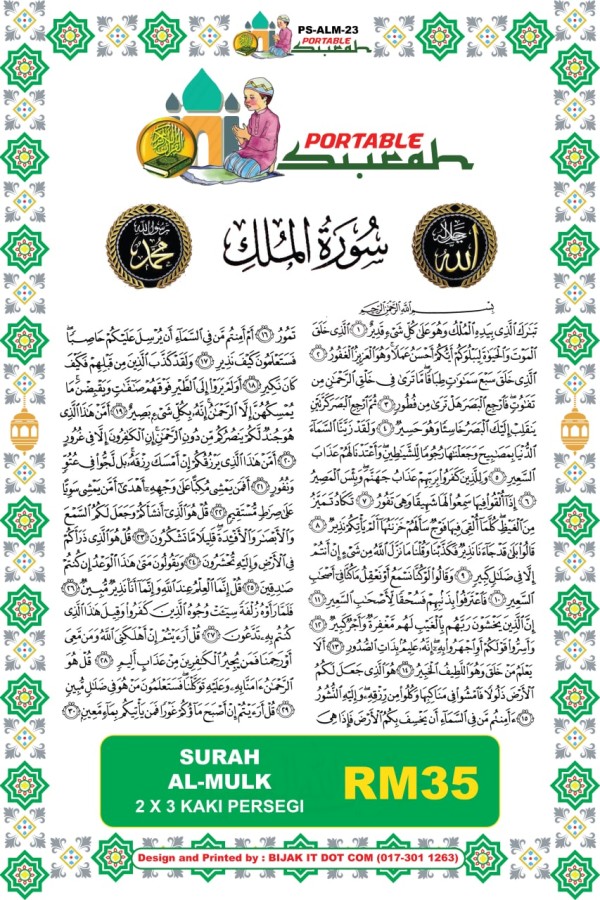 PS-ALM-23
PORTABLE
Surah
PORTABLE
Surah
رسول الله
محمد
سُورَةُ الْمُلْكِ
جل جلاله
الله
بِسْمِ اللَّهِ الرَّحْمَٰنِ الرَّحِيمِ
تَبَٰرَكَ الَّذِى بِيَدِهِ الْمُلْكُ وَهُوَ عَلَىٰ كُلِّ شَىْءٍ قَدِيرٌ ١ الَّذِى خَلَقَ
الْمَوْتَ وَالْحَيَوٰةَ لِيَبْلُوَكُمْ أَيُّكُمْ أَحْسَنُ عَمَلًا وَهُوَ الْعَزِيزُ الْغَفُورُ ٢
الَّذِى خَلَقَ سَبْعَ سَمَٰوَٰتٍ طِبَاقًا مَّا تَرَىٰ فِى خَلْقِ الرَّحْمَٰنِ مِن
تَفَٰوُتٍ فَارْجِعِ الْبَصَرَ هَلْ تَرَىٰ مِن فُطُورٍ ٣ ثُمَّ ارْجِعِ الْبَصَرَ كَرَّتَيْنِ
يَنقَلِبْ إِلَيْكَ الْبَصَرُ خَاسِئًا وَهُوَ حَسِيرٌ ٤ وَلَقَدْ زَيَّنَّا السَّمَآءَ
الدُّنْيَا بِمَصَٰبِيحَ وَجَعَلْنَٰهَا رُجُومًا لِّلشَّيَٰطِينِ وَأَعْتَدْنَا لَهُمْ عَذَابَ
السَّعِيرِ ٥ وَلِلَّذِينَ كَفَرُوا بِرَبِّهِمْ عَذَابُ جَهَنَّمَ وَبِئْسَ الْمَصِيرُ
٦ إِذَآ أُلْقُوا فِيهَا سَمِعُوا لَهَا شَهِيقًا وَهِىَ تَفُورُ ٧ تَكَادُ تَمَيَّزُ
مِنَ الْغَيْظِ كُلَّمَآ أُلْقِىَ فِيهَا فَوْجٌ سَأَلَهُمْ خَزَنَتُهَآ أَلَمْ يَأْتِكُمْ نَذِيرٌ ٨
قَالُوا بَلَىٰ قَدْ جَآءَنَا نَذِيرٌ فَكَذَّبْنَا وَقُلْنَا مَا نَزَّلَ اللَّهُ مِن شَىْءٍ إِنْ أَنتُمْ
إِلَّا فِى ضَلَٰلٍ كَبِيرٍ ٩ وَقَالُوا لَوْ كُنَّا نَسْمَعُ أَوْ نَعْقِلُ مَا كُنَّا فِىٓ أَصْحَٰبِ
السَّعِيرِ ١٠ فَاعْتَرَفُوا بِذَنبِهِمْ فَسُحْقًا لِّأَصْحَٰبِ السَّعِيرِ ١١
إِنَّ الَّذِينَ يَخْشَوْنَ رَبَّهُم بِالْغَيْبِ لَهُم مَّغْفِرَةٌ وَأَجْرٌ كَبِيرٌ ١٢
وَأَسِرُّوا قَوْلَكُمْ أَوِ اجْهَرُوا بِهِۦٓ إِنَّهُۥ عَلِيمٌۢ بِذَاتِ الصُّدُورِ ١٣ أَلَا
يَعْلَمُ مَنْ خَلَقَ وَهُوَ اللَّطِيفُ الْخَبِيرُ ١٤ هُوَ الَّذِى جَعَلَ لَكُمُ
الْأَرْضَ ذَلُولًا فَامْشُوا فِى مَنَاكِبِهَا وَكُلُوا مِن رِّزْقِهِۦ وَإِلَيْهِ النُّشُورُ
١٥ ءَأَمِنتُم مَّن فِى السَّمَآءِ أَن يَخْسِفَ بِكُمُ الْأَرْضَ فَإِذَا هِىَ
تَمُورُ ١٦ أَمْ أَمِنتُم مَّن فِى السَّمَآءِ أَن يُرْسِلَ عَلَيْكُمْ حَاصِبًا
فَسَتَعْلَمُونَ كَيْفَ نَذِيرِ ١٧ وَلَقَدْ كَذَّبَ الَّذِينَ مِن قَبْلِهِمْ فَكَيْفَ
كَانَ نَكِيرِ ١٨ أَوَلَمْ يَرَوْا إِلَى الطَّيْرِ فَوْقَهُمْ صَٰٓفَّٰتٍ وَيَقْبِضْنَ مَا
يُمْسِكُهُنَّ إِلَّا الرَّحْمَٰنُ إِنَّهُۥ بِكُلِّ شَىْءٍۭ بَصِيرٌ ١٩ أَمَّنْ هَٰذَا الَّذِى
هُوَ جُندٌ لَّكُمْ يَنصُرُكُم مِّن دُونِ الرَّحْمَٰنِ إِنِ الْكَٰفِرُونَ إِلَّا فِى غُرُورٍ
٢٠ أَمَّنْ هَٰذَا الَّذِى يَرْزُقُكُمْ إِنْ أَمْسَكَ رِزْقَهُۥ بَل لَّجُّوا فِى عُتُوٍّ
وَنُفُورٍ ٢١ أَفَمَن يَمْشِى مُكِبًّا عَلَىٰ وَجْهِهِۦٓ أَهْدَىٰٓ أَمَّن يَمْشِى سَوِيًّا
عَلَىٰ صِرَٰطٍ مُّسْتَقِيمٍ ٢٢ قُلْ هُوَ الَّذِىٓ أَنشَأَكُمْ وَجَعَلَ لَكُمُ السَّمْعَ
وَالْأَبْصَٰرَ وَالْأَفْـِٔدَةَ قَلِيلًا مَّا تَشْكُرُونَ ٢٣ قُلْ هُوَ الَّذِى ذَرَأَكُمْ
فِى الْأَرْضِ وَإِلَيْهِ تُحْشَرُونَ ٢٤ وَيَقُولُونَ مَتَىٰ هَٰذَا الْوَعْدُ إِن كُنتُمْ
صَٰدِقِينَ ٢٥ قُلْ إِنَّمَا الْعِلْمُ عِندَ اللَّهِ وَإِنَّمَآ أَنَا نَذِيرٌ مُّبِينٌ ٢٦
فَلَمَّا رَأَوْهُ زُلْفَةً سِيٓـَٔتْ وُجُوهُ الَّذِينَ كَفَرُوا وَقِيلَ هَٰذَا الَّذِى
كُنتُم بِهِۦ تَدَّعُونَ ٢٧ قُلْ أَرَءَيْتُمْ إِنْ أَهْلَكَنِىَ اللَّهُ وَمَن مَّعِىَ
أَوْ رَحِمَنَا فَمَن يُجِيرُ الْكَٰفِرِينَ مِنْ عَذَابٍ أَلِيمٍ ٢٨ قُلْ هُوَ
الرَّحْمَٰنُ ءَامَنَّا بِهِۦ وَعَلَيْهِ تَوَكَّلْنَا فَسَتَعْلَمُونَ مَنْ هُوَ فِى ضَلَٰلٍ مُّبِينٍ
٢٩ قُلْ أَرَءَيْتُمْ إِنْ أَصْبَحَ مَآؤُكُمْ غَوْرًا فَمَن يَأْتِيكُم بِمَآءٍ مَّعِينٍۭ ٣٠
SURAH
AL-MULK
2 X 3 KAKI PERSEGI
RM35
Design and Printed by : BIJAK IT DOT COM (017-301 1263)